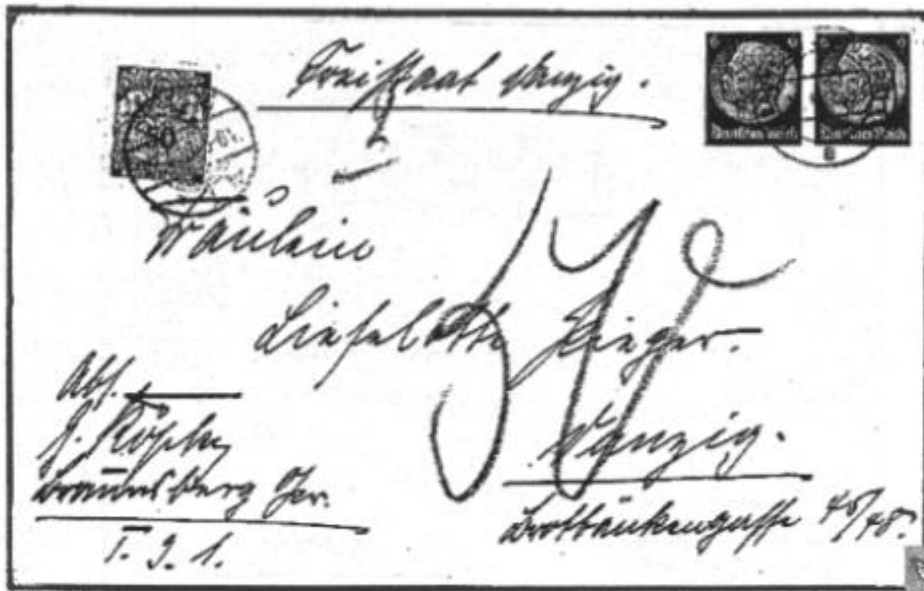 Freistaat Danzig.
Deutsches Reich
Deutsches Reich
50
Fräulein
Lieselotte Krieger.
Danzig.
Brotbänkengasse 45/48.
Abs.
Braunsberg Pr.